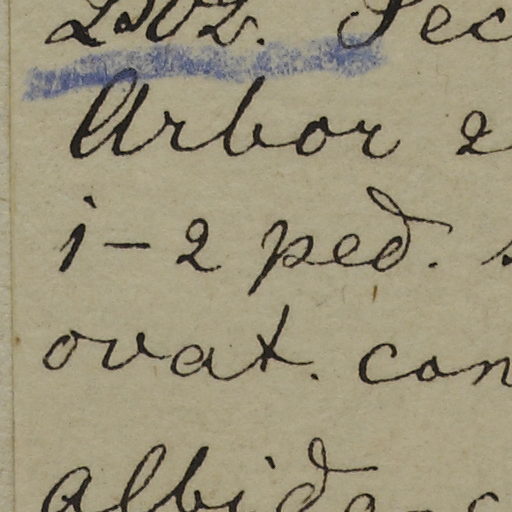 2502. Sec
Arbor 2
1-2 ped. s
ovat. con
albida-c